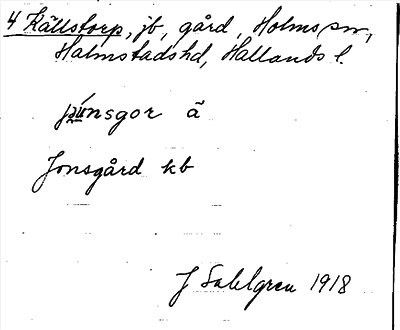 4 Källstorp, jb, gård, Holms sn,
Halmstads hd, Hallands l.
nsgor ã
Jonsgård kb
J Sahlgren 1918